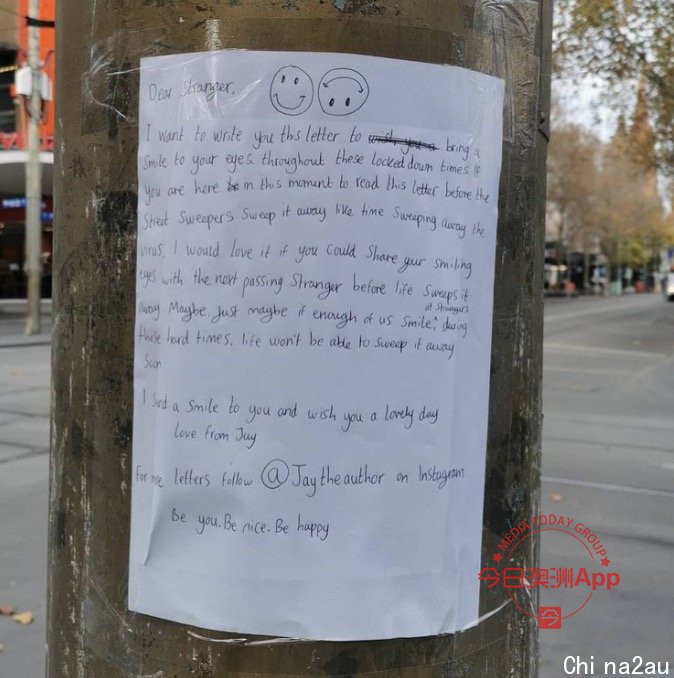 Dear Stranger,
I want to write you this letter to wish you a bring a
Smile to your eyes. throughout these locked down times. If
you are here be in this moment to read this letter before the
Street Sweepers Sweep it away like time Sweeping away the
virus. I would love it if you could Share your smiling
eyes with the next passing Stranger before life Sweeps it
away. Maybe, Just maybe if enough of us Smile, at Strangers during
these hard times, life won't be able to sweep it away
Soon
I Send a Smile to you and wish you a lovely day
love from Jay
For me letters follow @Jaytheauthor on Instagram
Be you. Be nice. Be happy
MEDIA TODAY GROUP
今日澳洲App
今
Chi na2au